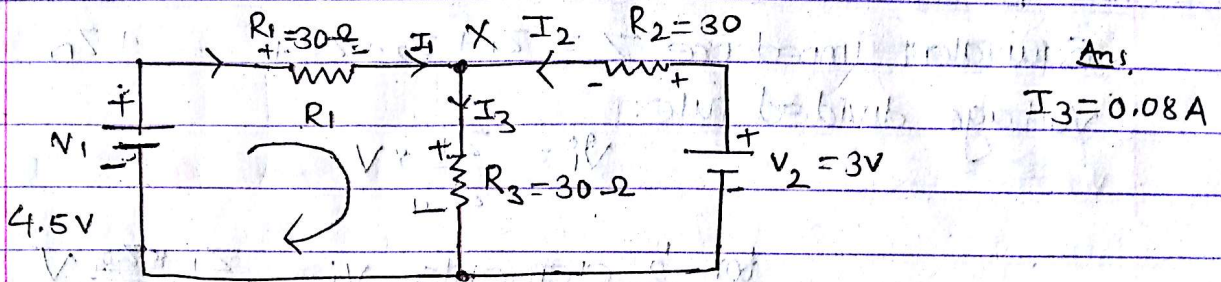 R1=30Ω I1 X I2 R2=30
+ -
- +
Ans,
I3=0.08A
R1
I3
+
V1
-
+
R3=30Ω
-
+
V2=3V
-
4.5V